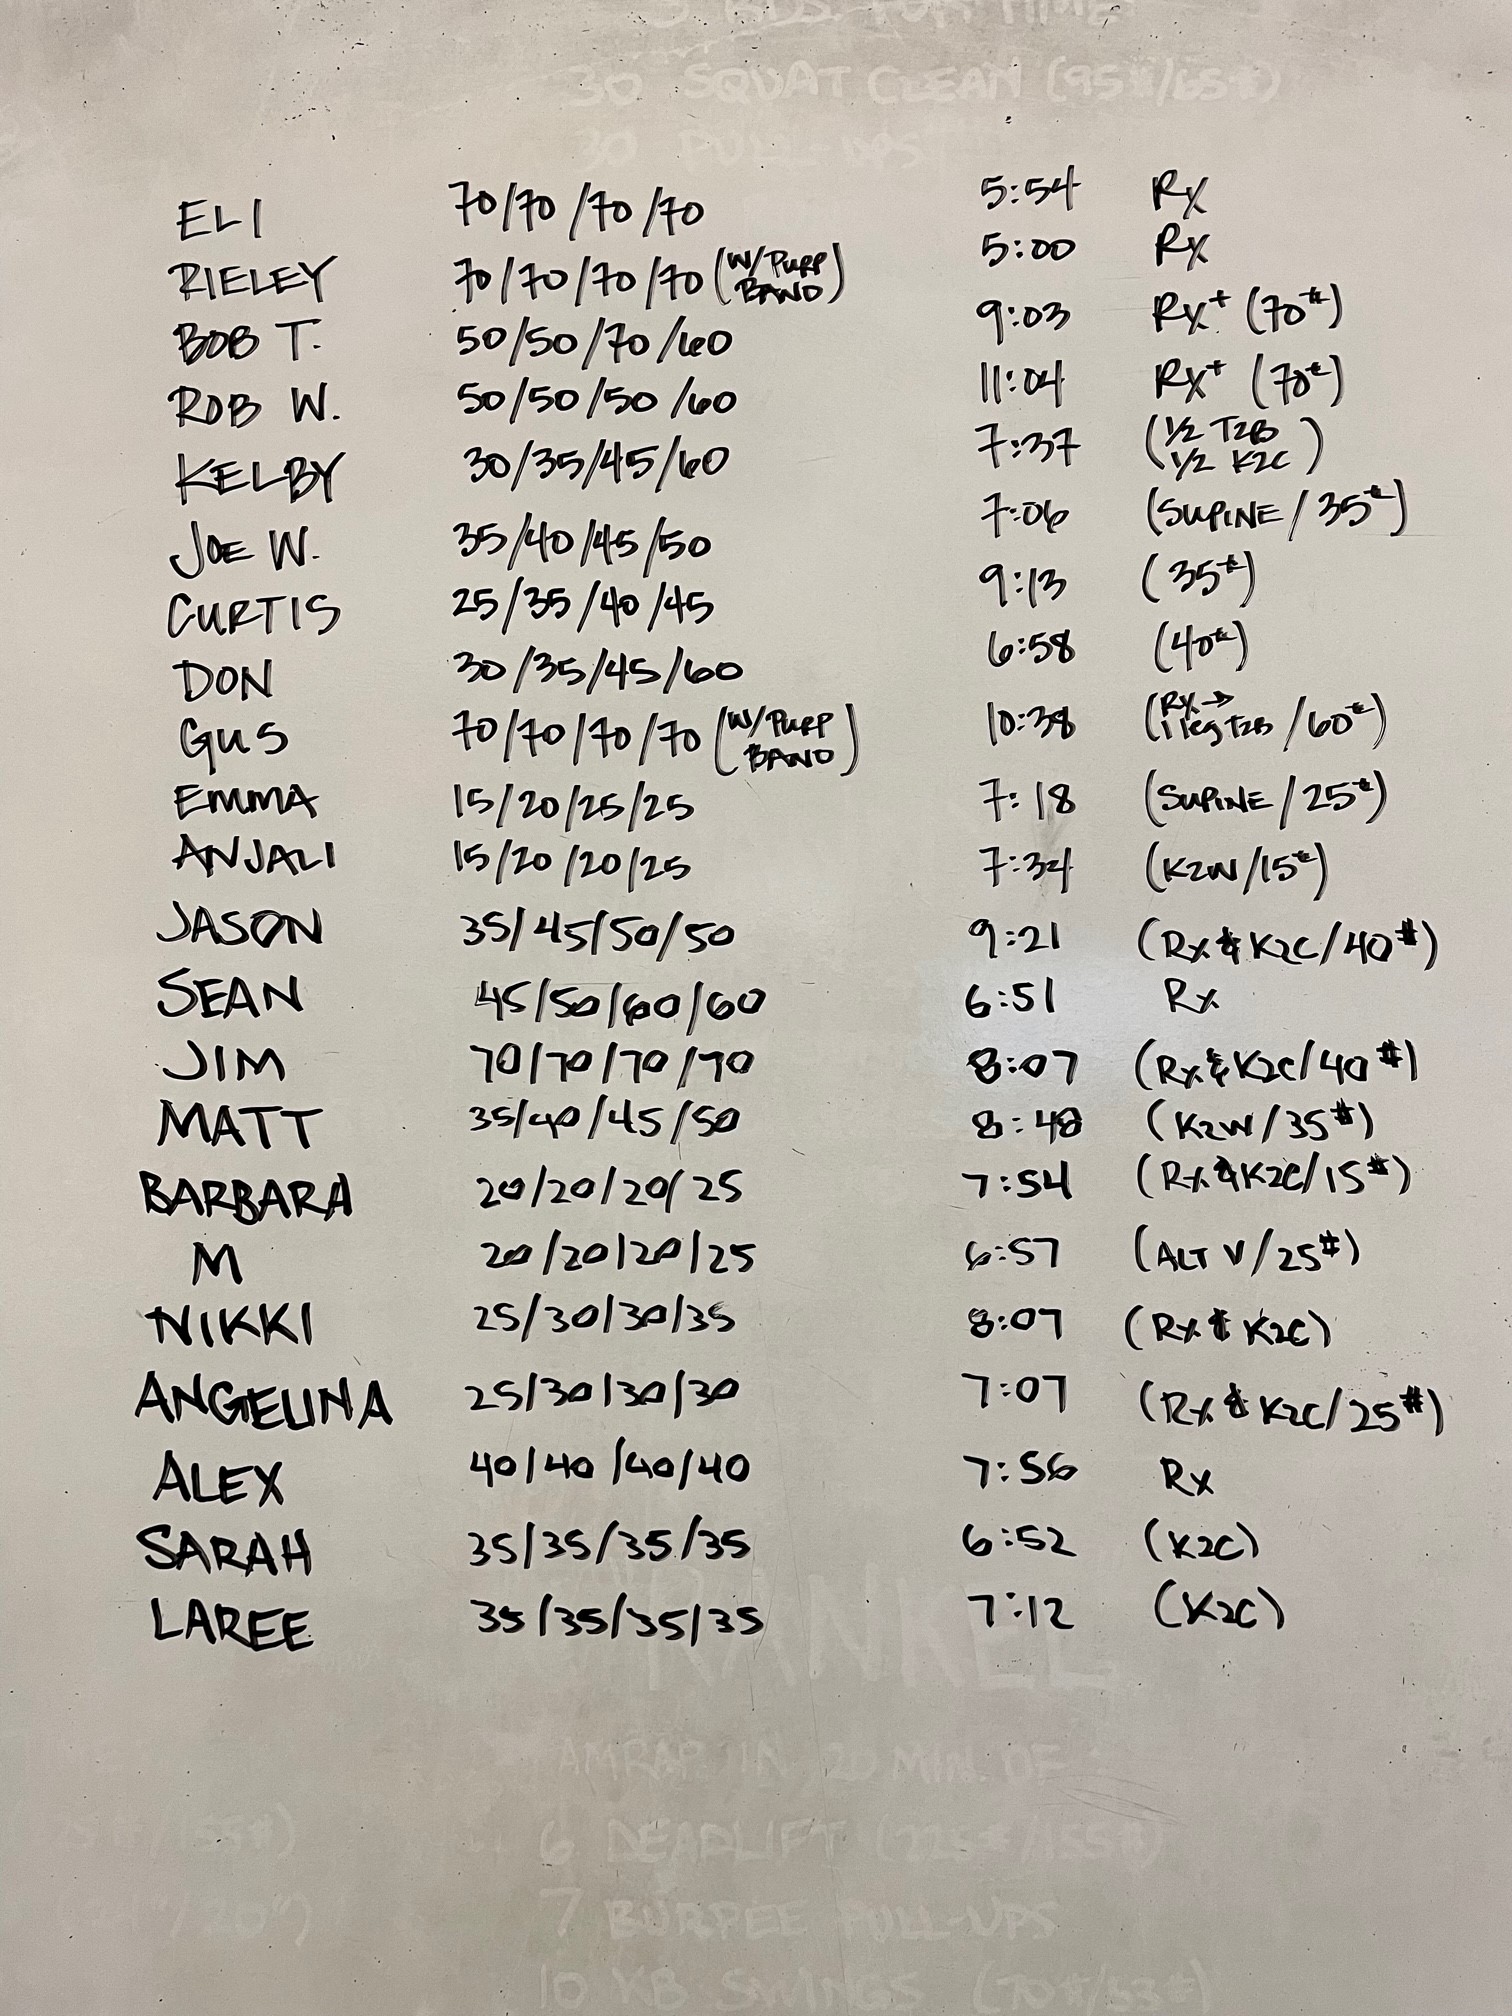 30 SQUAT CLEAN (95#/65#)
30 PULL-UPS
ELI 70/70/70/70 5:54 Rx
RIELEY 70/70/70/70 (W/PURP BAND) 5:00 Rx
BOB T. 50/50/70/60 9:03 Rx+ (70#)
ROB W. 50/50/50/60 11:04 Rx+ (70#)
KELBY 30/35/45/60 7:37 (1/2 T2B 1/2 K2C)
JOE W. 35/40/45/50 7:06 (SUPINE/35#)
CURTIS 25/35/40/45 9:13 (35#)
DON 30/35/45/60 6:58 (40#)
GUS 70/70/70/70 (W/PURP BAND) 10:38 (Rx→ 1 leg T2B/60#)
EMMA 15/20/25/25 7:18 (SUPINE/25#)
ANJALI 15/20/20/25 7:34 (K2W/15#)
JASON 35/45/50/50 9:21 (Rx & K2C/40#)
SEAN 45/50/60/60 6:51 Rx
JIM 70/70/70/70 8:07 (Rx & K2C/40#)
MATT 35/40/45/50 8:48 (K2W/35#)
BARBARA 20/20/20/25 7:54 (Rx & K2C/15#)
M 20/20/20/25 6:57 (ALT V/25#)
NIKKI 25/30/30/35 8:07 (Rx & K2C)
ANGELINA 25/30/30/30 7:07 (Rx & K2C/25#)
ALEX 40/40/40/40 7:56 Rx
SARAH 35/35/35/35 6:52 (K2C)
LAREE 35/35/35/35 7:12 (K2C)
AMRAP IN 20 MIN. OF
6 DEADLIFT (225#/155#)
7 BURPEE PULL-UPS
10 KB SWINGS (70#/53#)